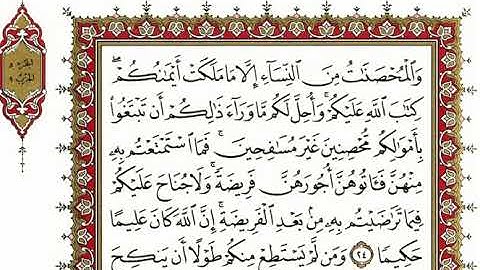 وَالْمُحْصَنَٰتُ مِنَ النِّسَآءِ إِلَّا مَا مَلَكَتْ أَيْمَٰنُكُمْ ۖ
كِتَٰبَ اللَّهِ عَلَيْكُمْ ۚ وَأُحِلَّ لَكُم مَّا وَرَآءَ ذَٰلِكُمْ أَن تَبْتَغُوا۟
بِأَمْوَٰلِكُم مُّحْصِنِينَ غَيْرَ مُسَٰفِحِينَ ۚ فَمَا اسْتَمْتَعْتُم بِهِۦ
مِنْهُنَّ فَـَٔاتُوهُنَّ أُجُورَهُنَّ فَرِيضَةً ۚ وَلَا جُنَاحَ عَلَيْكُمْ
فِيمَا تَرَٰضَيْتُم بِهِۦ مِنۢ بَعْدِ الْفَرِيضَةِ ۚ إِنَّ اللَّهَ كَانَ عَلِيمًا
حَكِيمًا ٢٤ وَمَن لَّمْ يَسْتَطِعْ مِنكُمْ طَوْلًا أَن يَنكِحَ